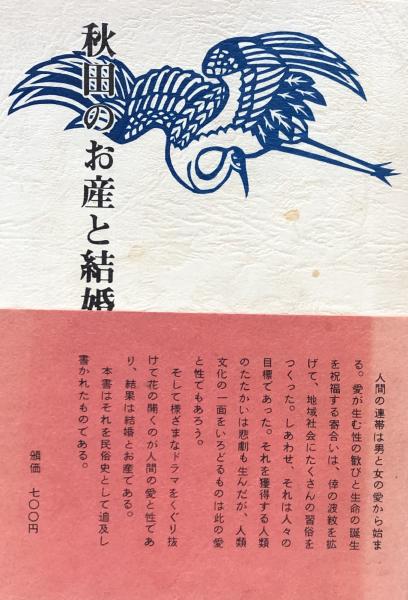 秋田のお産と結婚
人間の連帯は男と女の愛から始ま
る。愛が生む性の歓びと生命の誕生
を祝福する寄合いは、倖の波紋を拡
げて、地域社会にたくさんの習俗を
つくった。しあわせ、それは人々の
目標であった。それを獲得する人類
のたたかいは悲劇も生んだが、人類
文化の一面をいろどるものは此の愛
と性でもあろう。
そして様ざまなドラマをくぐり抜
けて花の開くのが人間の愛と性であ
り、結果は結婚とお産である。
本書はそれを民俗史として追及し
書かれたものである。
頒価 七〇〇円